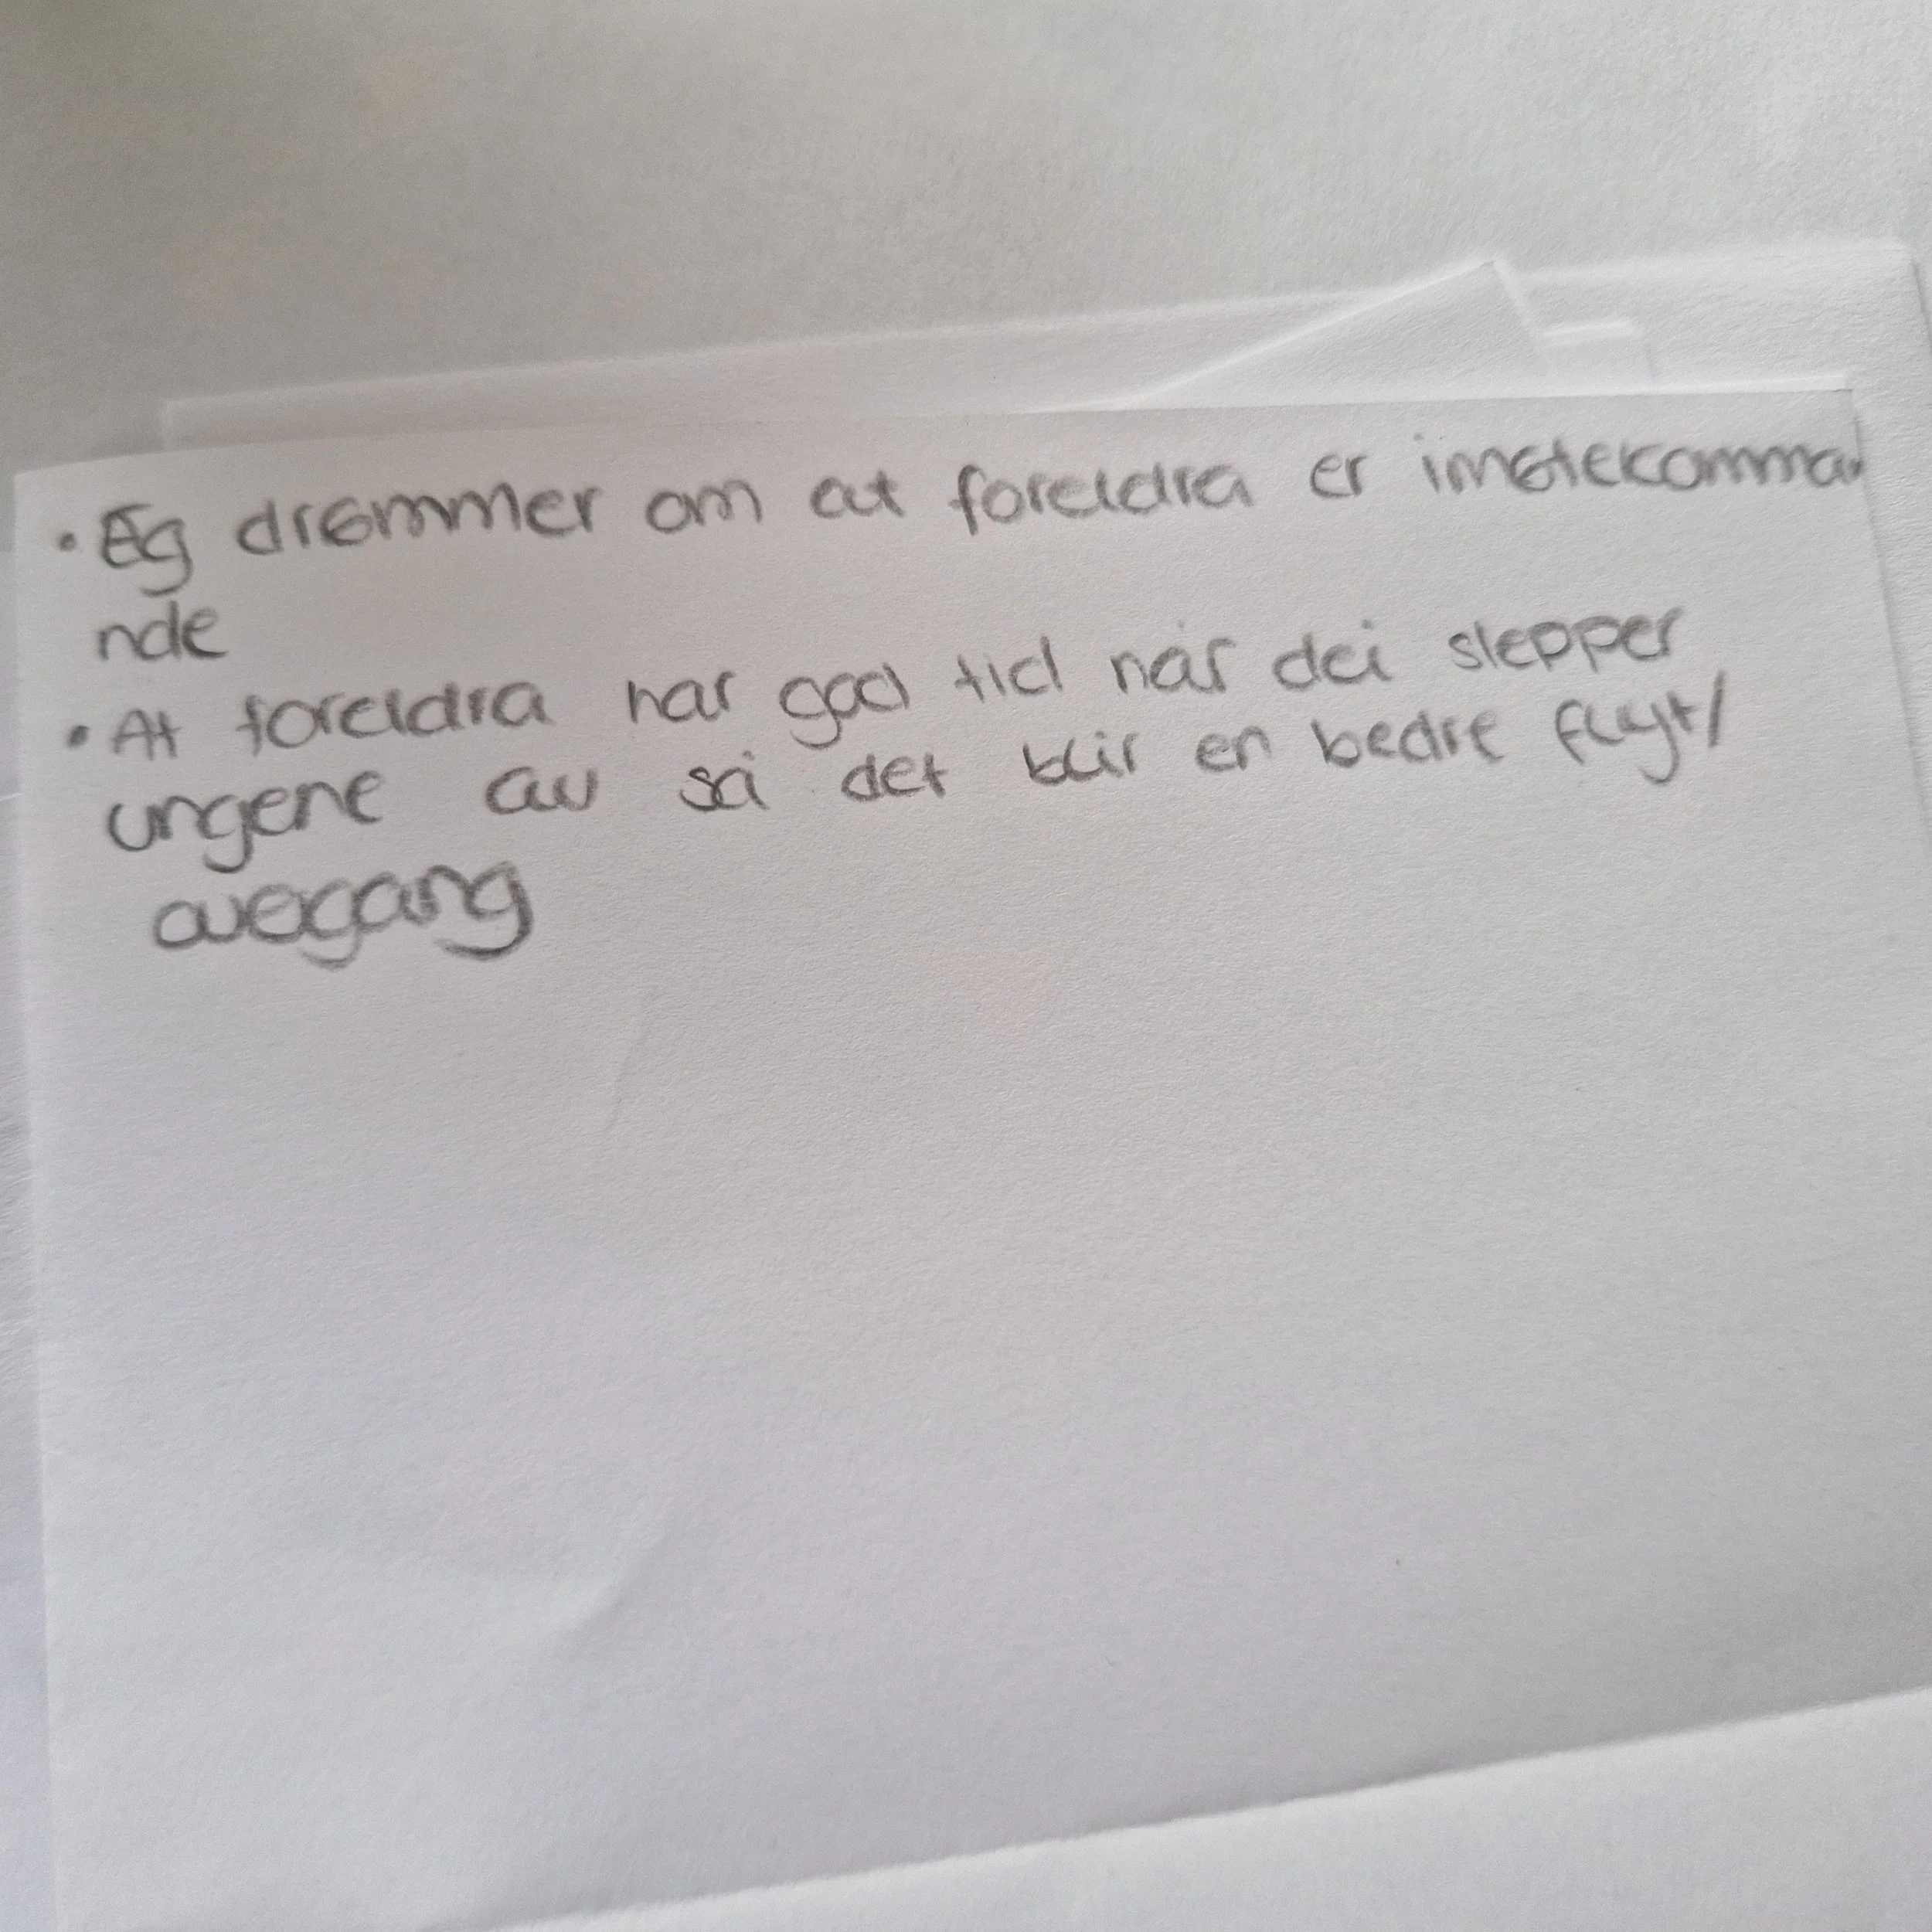 • Eg drømmer om at foreldra er imøtekomma
nde
• At foreldra har god tid når dei slepper
ungene av så det blir en bedre flyt/
overgang